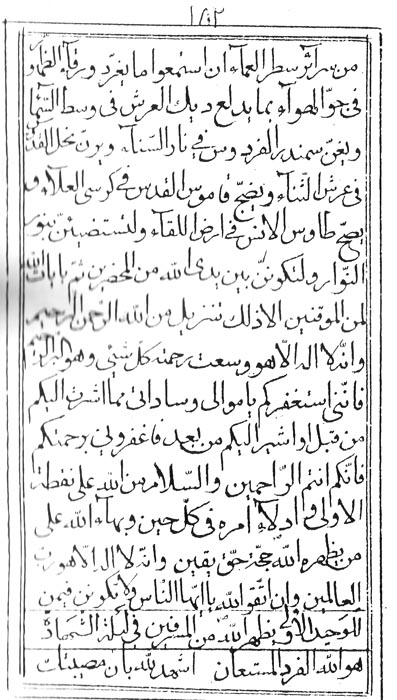 ١٨٣
من سرائر سطر العماء ان استمعوا ما يغرّد ورقاء الظهور
في جوّ الهواء بما يدلع ديك العرش في وسط السّماء
ويغنّ سمندر الفردوس في نار السّناء ويرنّ نحل القدس
في عرش الثّناء ويضجّ قاموس القدس في كرسي العلاء و
يصحّ طاوس الانس في ارض اللقاء ولتستضيئنّ بنور
النّوار ولتكوننّ بين يدي الله من المحضرين ثمّ بايات الله
لمن الموقنين الا ذلك تنزيل من الله الرّحمن الرّحيم
وانّه لا اله الّا هو وسعت رحمته كلّ شيء وهو
فانّني استغفركم يا موالي وساداتي ممّا اشرت اليكم
من قبل واشير اليكم من بعد فاغفرولي برحمتكم
فانّكم انتم الرّاحمين والسّلام من الله على نقطة
الاولى و ادلّاء امره في كلّ حين وبهاء الله على
من يظهره الله حجّة حقّ يقين وانّه لا اله الّا هو ربّ
العالمين وان اتّقوا الله يا ايّها النّاس ولا تكوننّ فيمن
للوحيد الاولى يظهر الله من المسرفين في ليلة الشّهادة
هو الله الفرد المستعان اشهد لله بان مصيبات